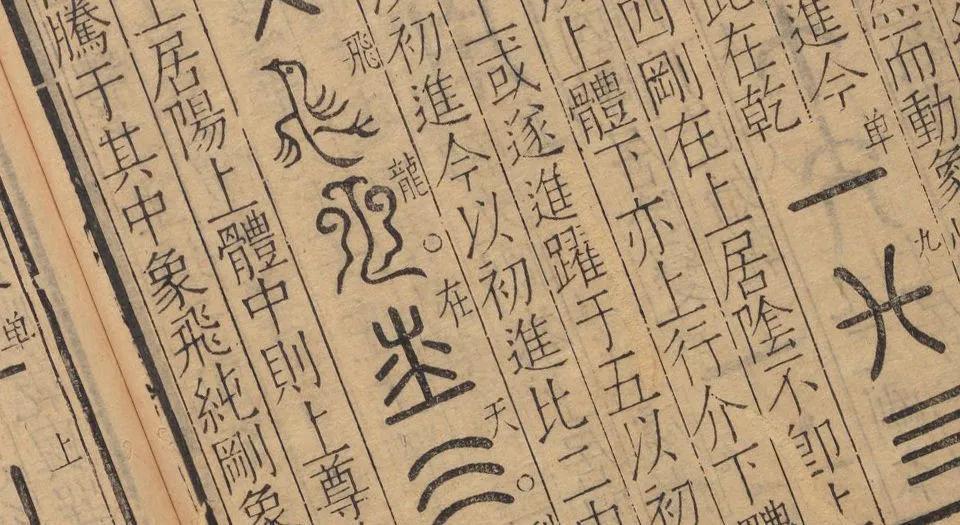 然而動象
進今
此在乾
单
九
四剛在上居陰不即上
上體下亦上行介下體
上或遂進躍于五以初
初進今以初進比二中
飛龍○在天○
上居陽上體中則上尊
騰于其中象飛純剛象
单
上